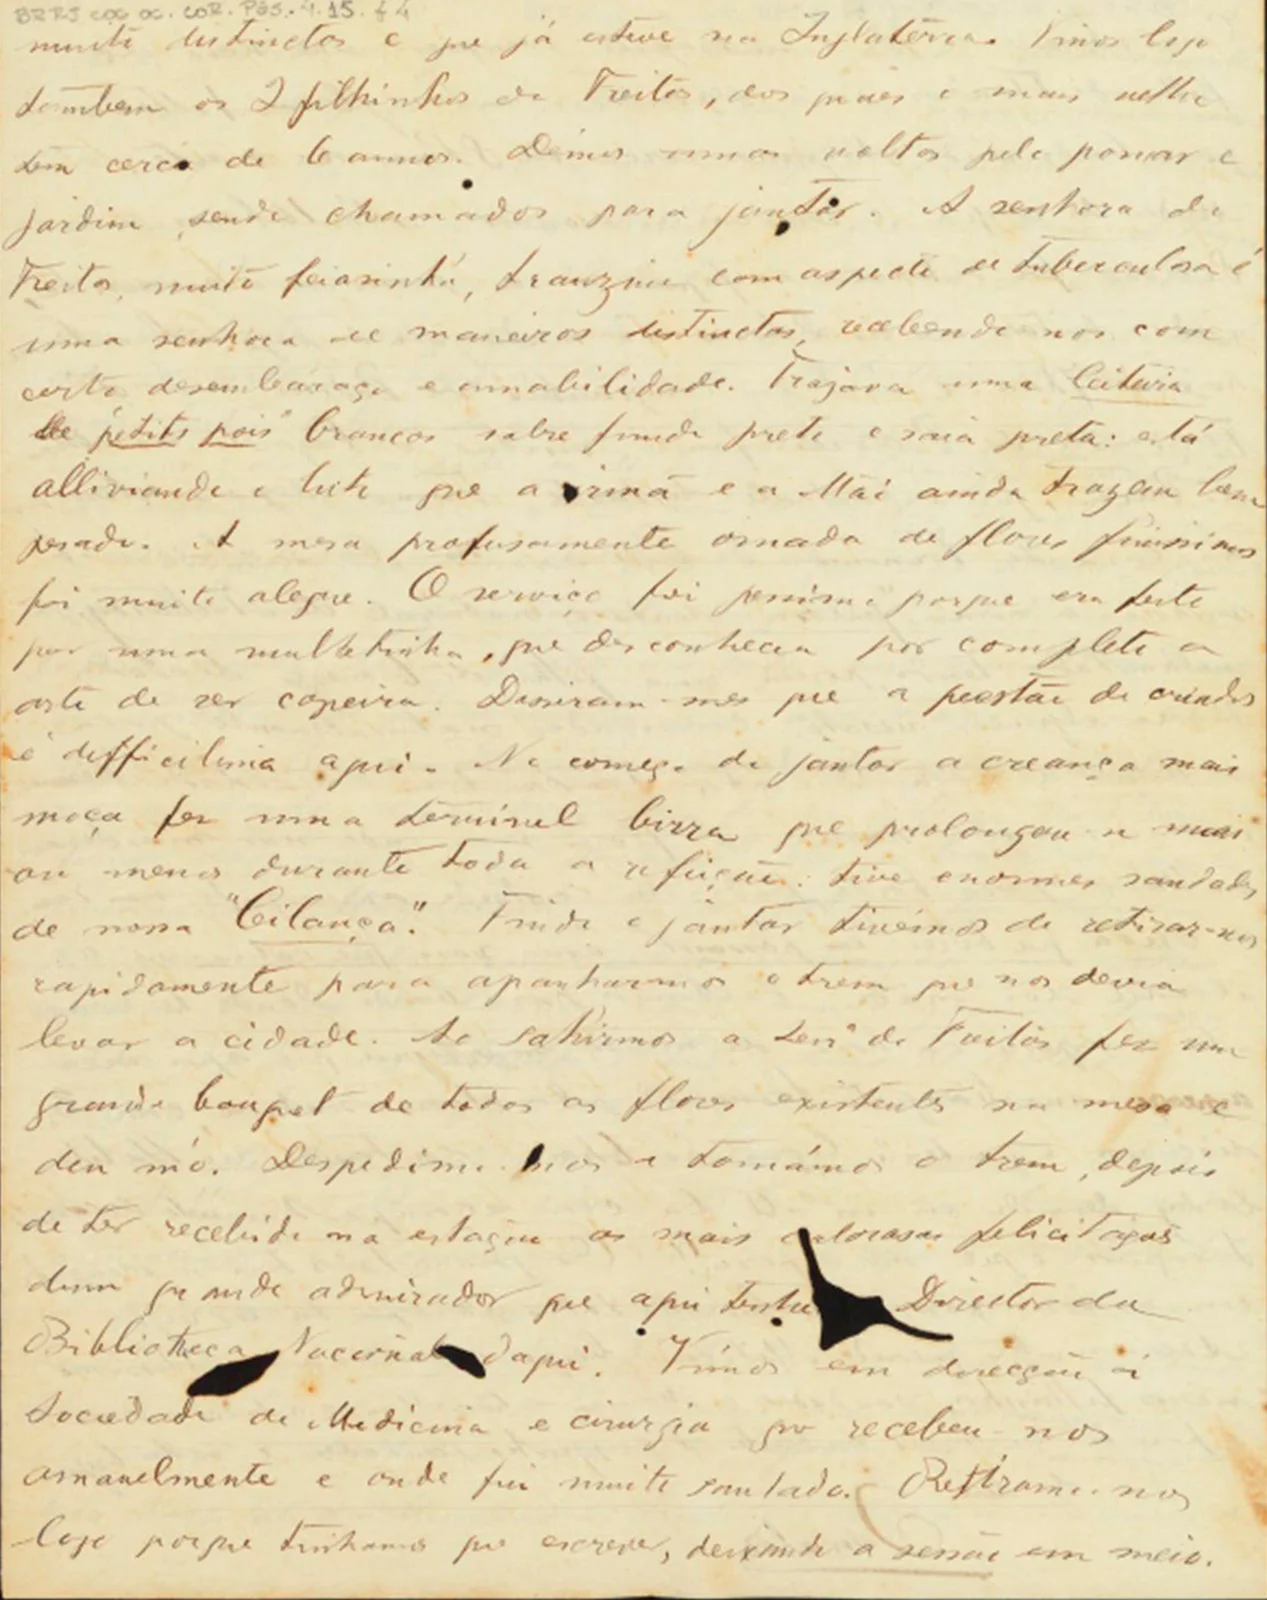 BRRJ COC OC. COR. PES. 4. 15. f 4
muito distinctos e que já esteve na Inglaterra. Vimos logo
tambem os 2 filhinhos do Freitas, dos quaes o mais velho
tem cerca de 6 annos. Démos umas voltas pelo pomar e
jardim sendo chamados para jantar. A senhora do
Freitas, muito feiasinha, franzina com aspecto de tuberculosa é
uma senhora de maneiras distinctas, recebendo nos com
certo desembaraço e amabilidade. Trajava uma leiteria
de "petits pois" brancos sobre fundo preto e saia preta: está
alliviando o luto que a irmã e a Mãi ainda trazem bem
pesado. A mesa profusamente ornada de flores finissimas
foi muito alegre. O serviço foi pessimo porque era feito
por uma mulatinha, que desconhecia por completo a
arte de ser copeira. Disseram-nos que a questão de criados
é difficilima aqui. No começo do jantar a creança mais
moça fez uma terrivel birra que prolongou-se mais
ou menos durante toda a refeição: tive enormes saudades
de nossa "bilança". Findo o jantar tivémos de retirar-nos
rapidamente para apanharmos o trem que nos devia
levar a cidade. Ao sahirmos a Senrª do Freitas fez um
grande bouquet de todas as flores existentes na mesa e
deu m'o. Despedimo-nos e tomámos o trem, depois
de ter recebido na estação as mais calorosas felicitações
dum grande admirador que aqui tenho Director da
Bibliotheca Nacional daqui. Vimos em direcção á
Sociedade de Medicina e cirurgia que recebeu-nos
amavelmente e onde fui muito saudado. Retiramo-nos
logo porque tinhamos que escrever, deixando a sessão em meio.